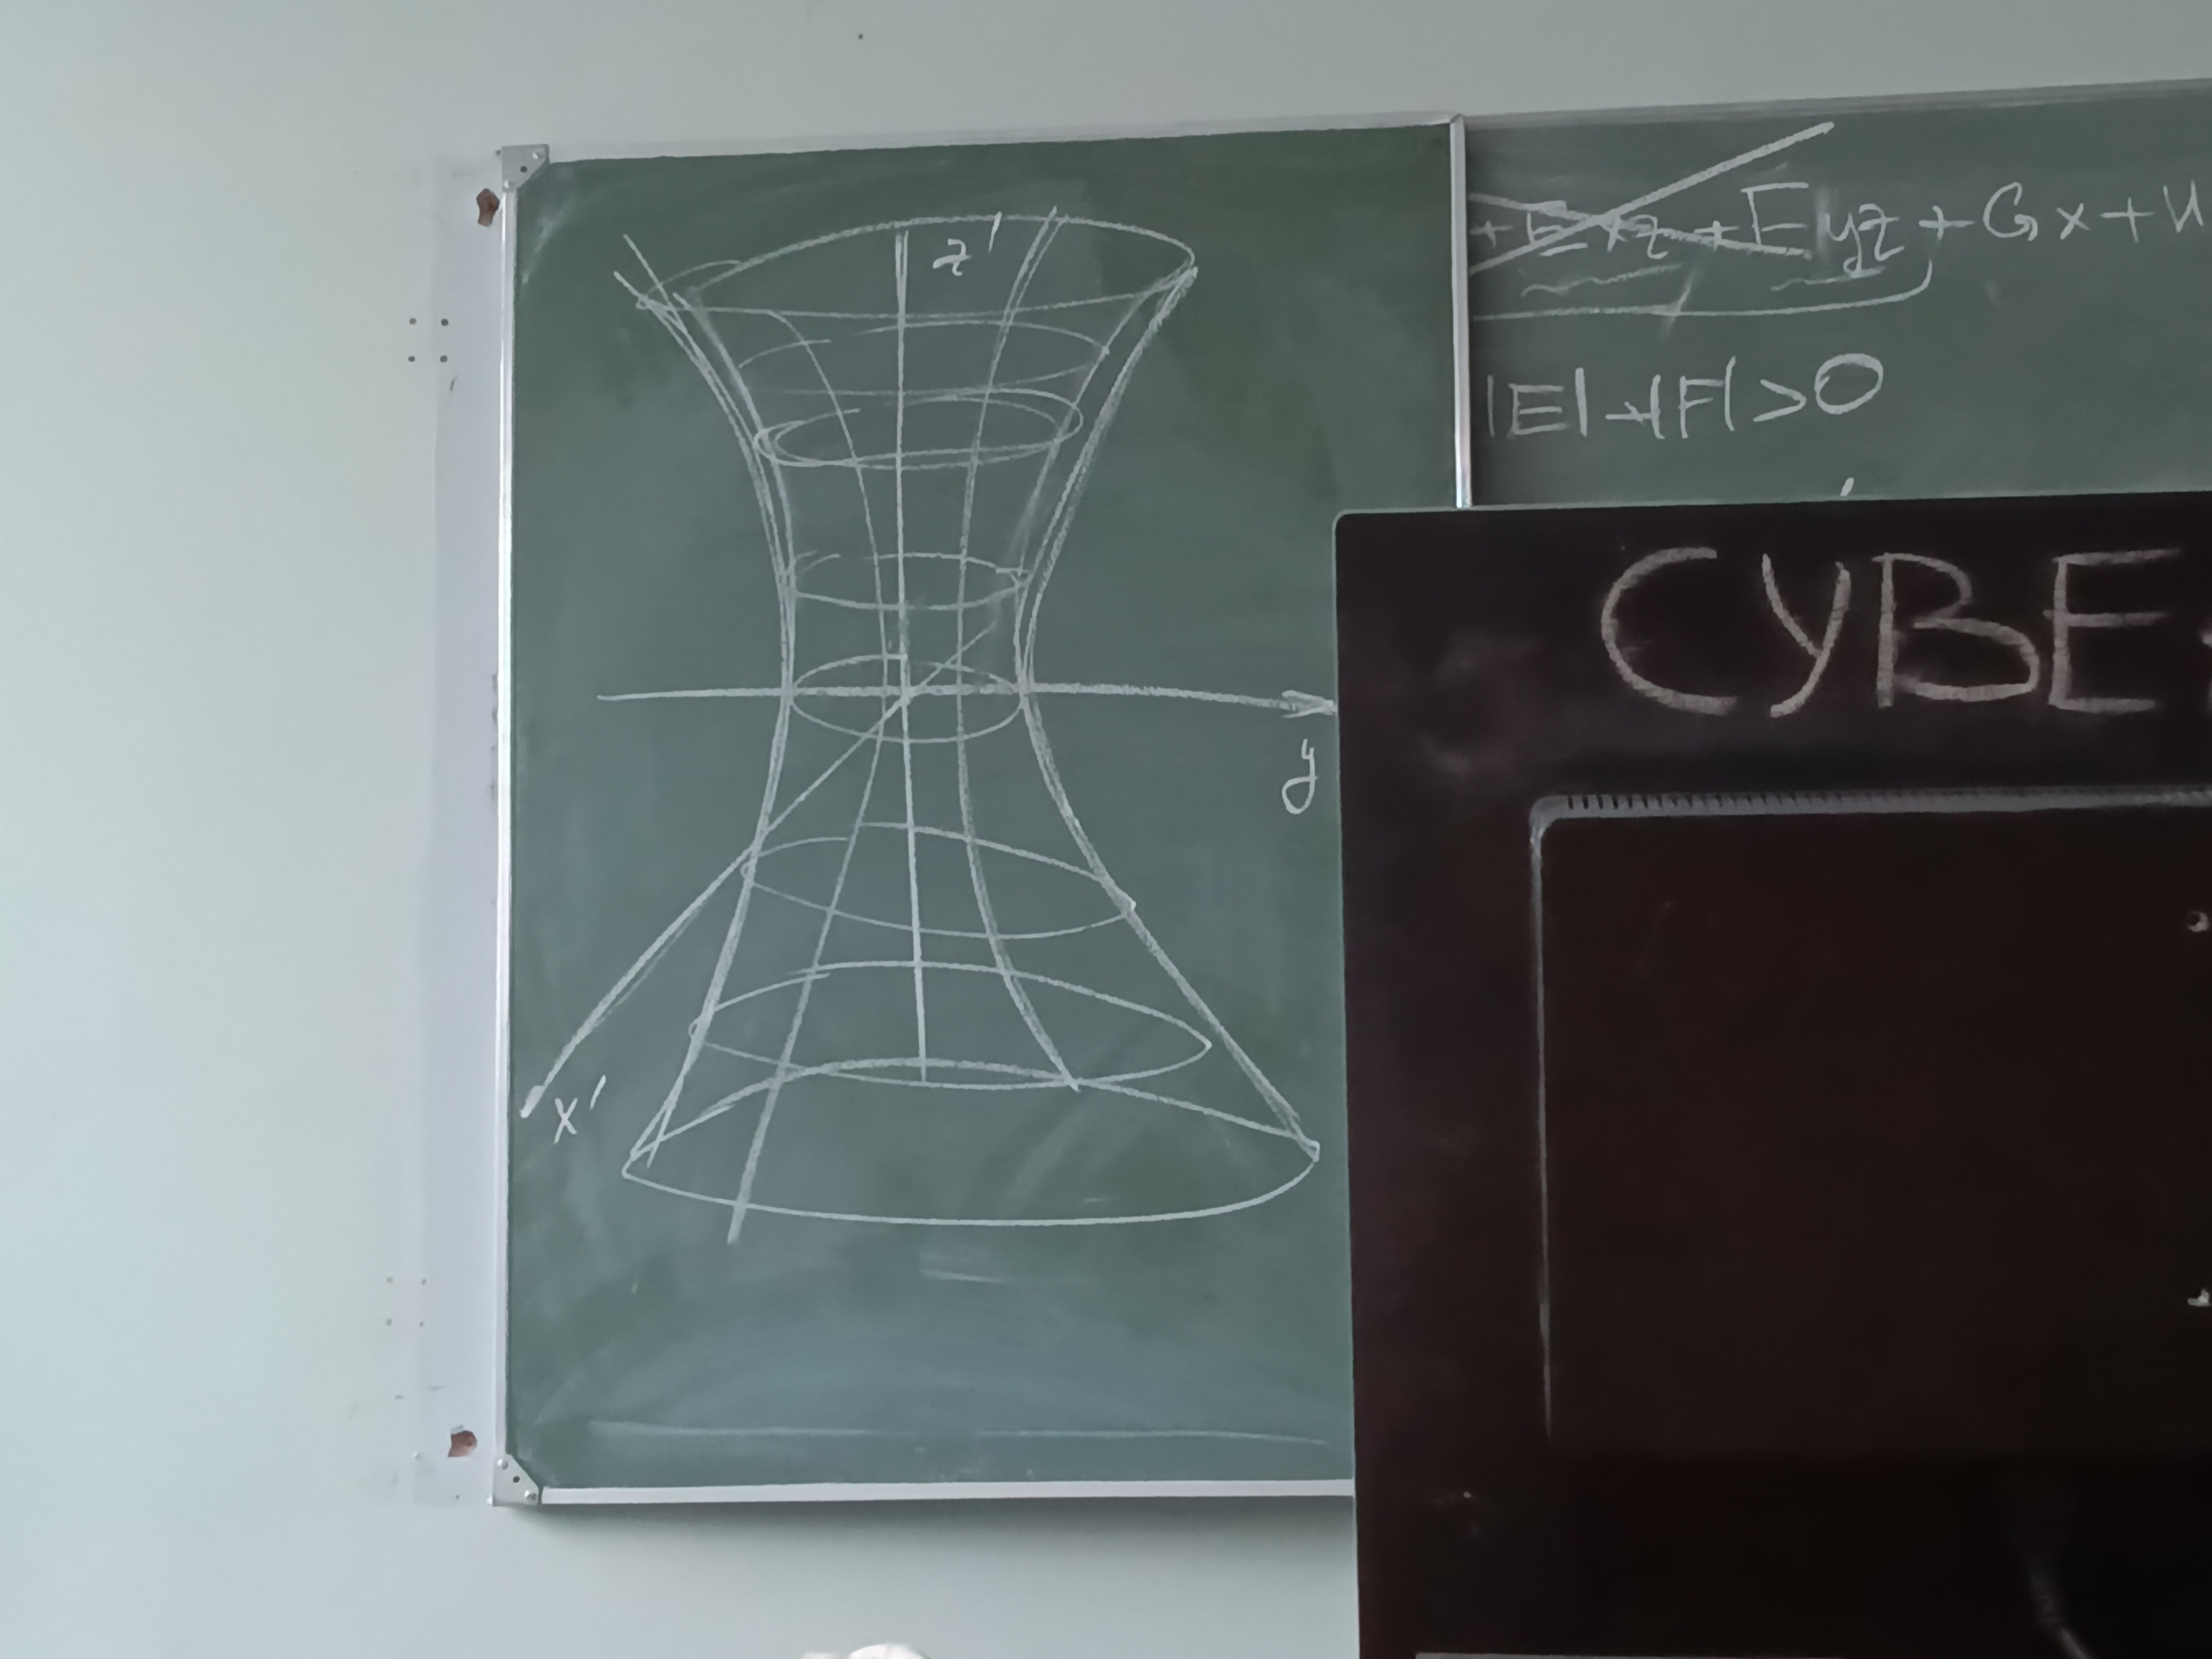 z'
y
x'
+Exz+Fyz+Gx+H
|E|+|F|>0
CYBE